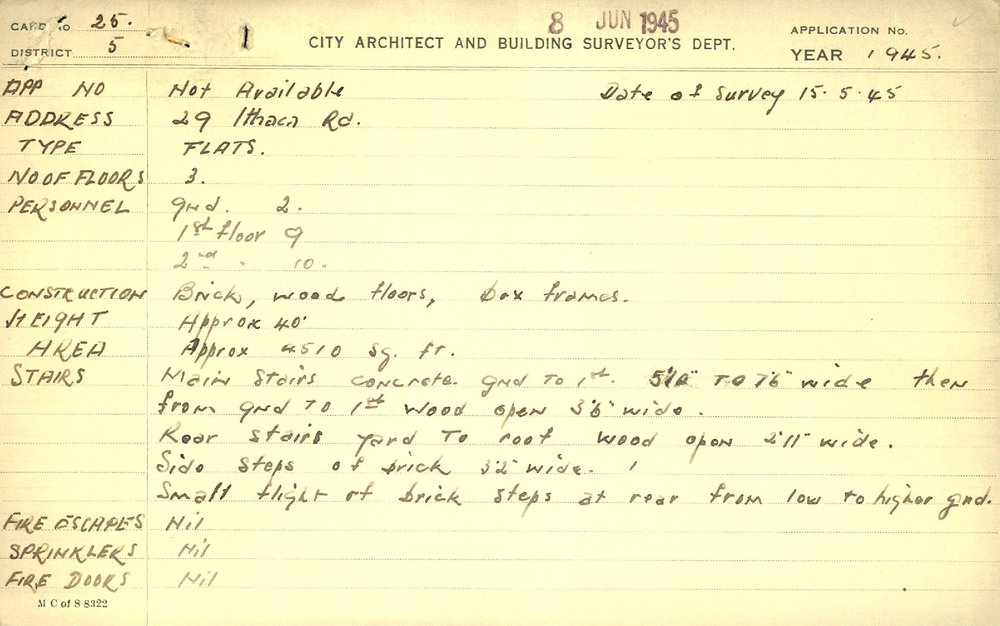 CARD No 25.
8 JUN 1945
APPLICATION No.
DISTRICT 5
1
CITY ARCHITECT AND BUILDING SURVEYOR'S DEPT.
YEAR 1945.
APP NO Not Available Date of Survey 15.5.45
ADDRESS 29 Ithaca Rd.
TYPE FLATS.
NO OF FLOORS 3.
PERSONNEL gnd. 2.
1st floor 9
2nd " 10.
CONSTRUCTION Brick, wood floors, box frames.
HEIGHT Approx 40'
AREA Approx 4510 sq. ft.
STAIRS Main Stairs concrete gnd to 1st. TO 7'6" wide then
from gnd TO 1st wood open 3'6" wide.
Rear stairs yard To roof wood open 2'11" wide.
Side steps of brick 3'2" wide.
Small flight of brick steps at rear from low to higher gnd.
FIRE ESCAPES Nil
SPRINKLERS Nil
FIRE DOORS Nil
M C of S 8322